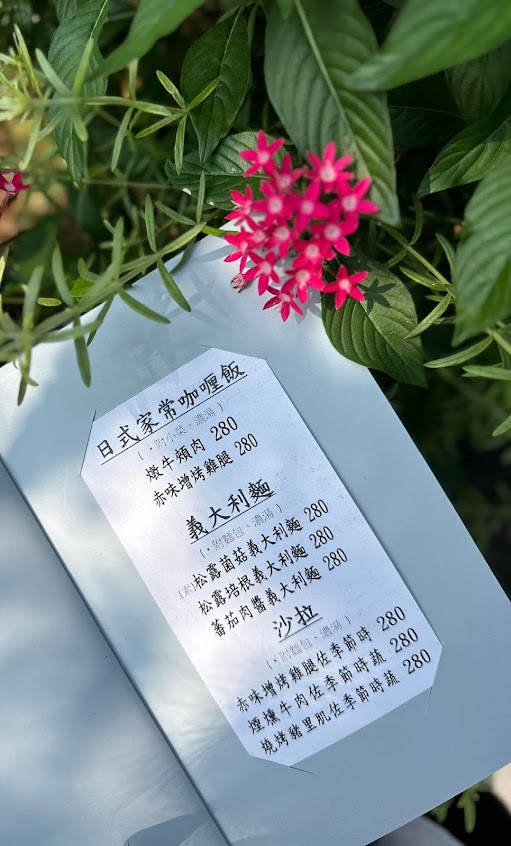 日式家常咖喱飯
(·附小菜、濃湯)
燉牛頰肉 280
赤味增烤雞腿 280
義大利麵
(·附麵包、濃湯)
(素)松露菌菇義大利麵 280
松露培根義大利麵 280
蕃茄肉醬義大利麵 280
沙拉
(·附麵包、濃湯)
赤味增烤雞腿佐季節時 280
煙燻牛肉佐季節時蔬 280
燒烤豬里肌佐季節時蔬 280